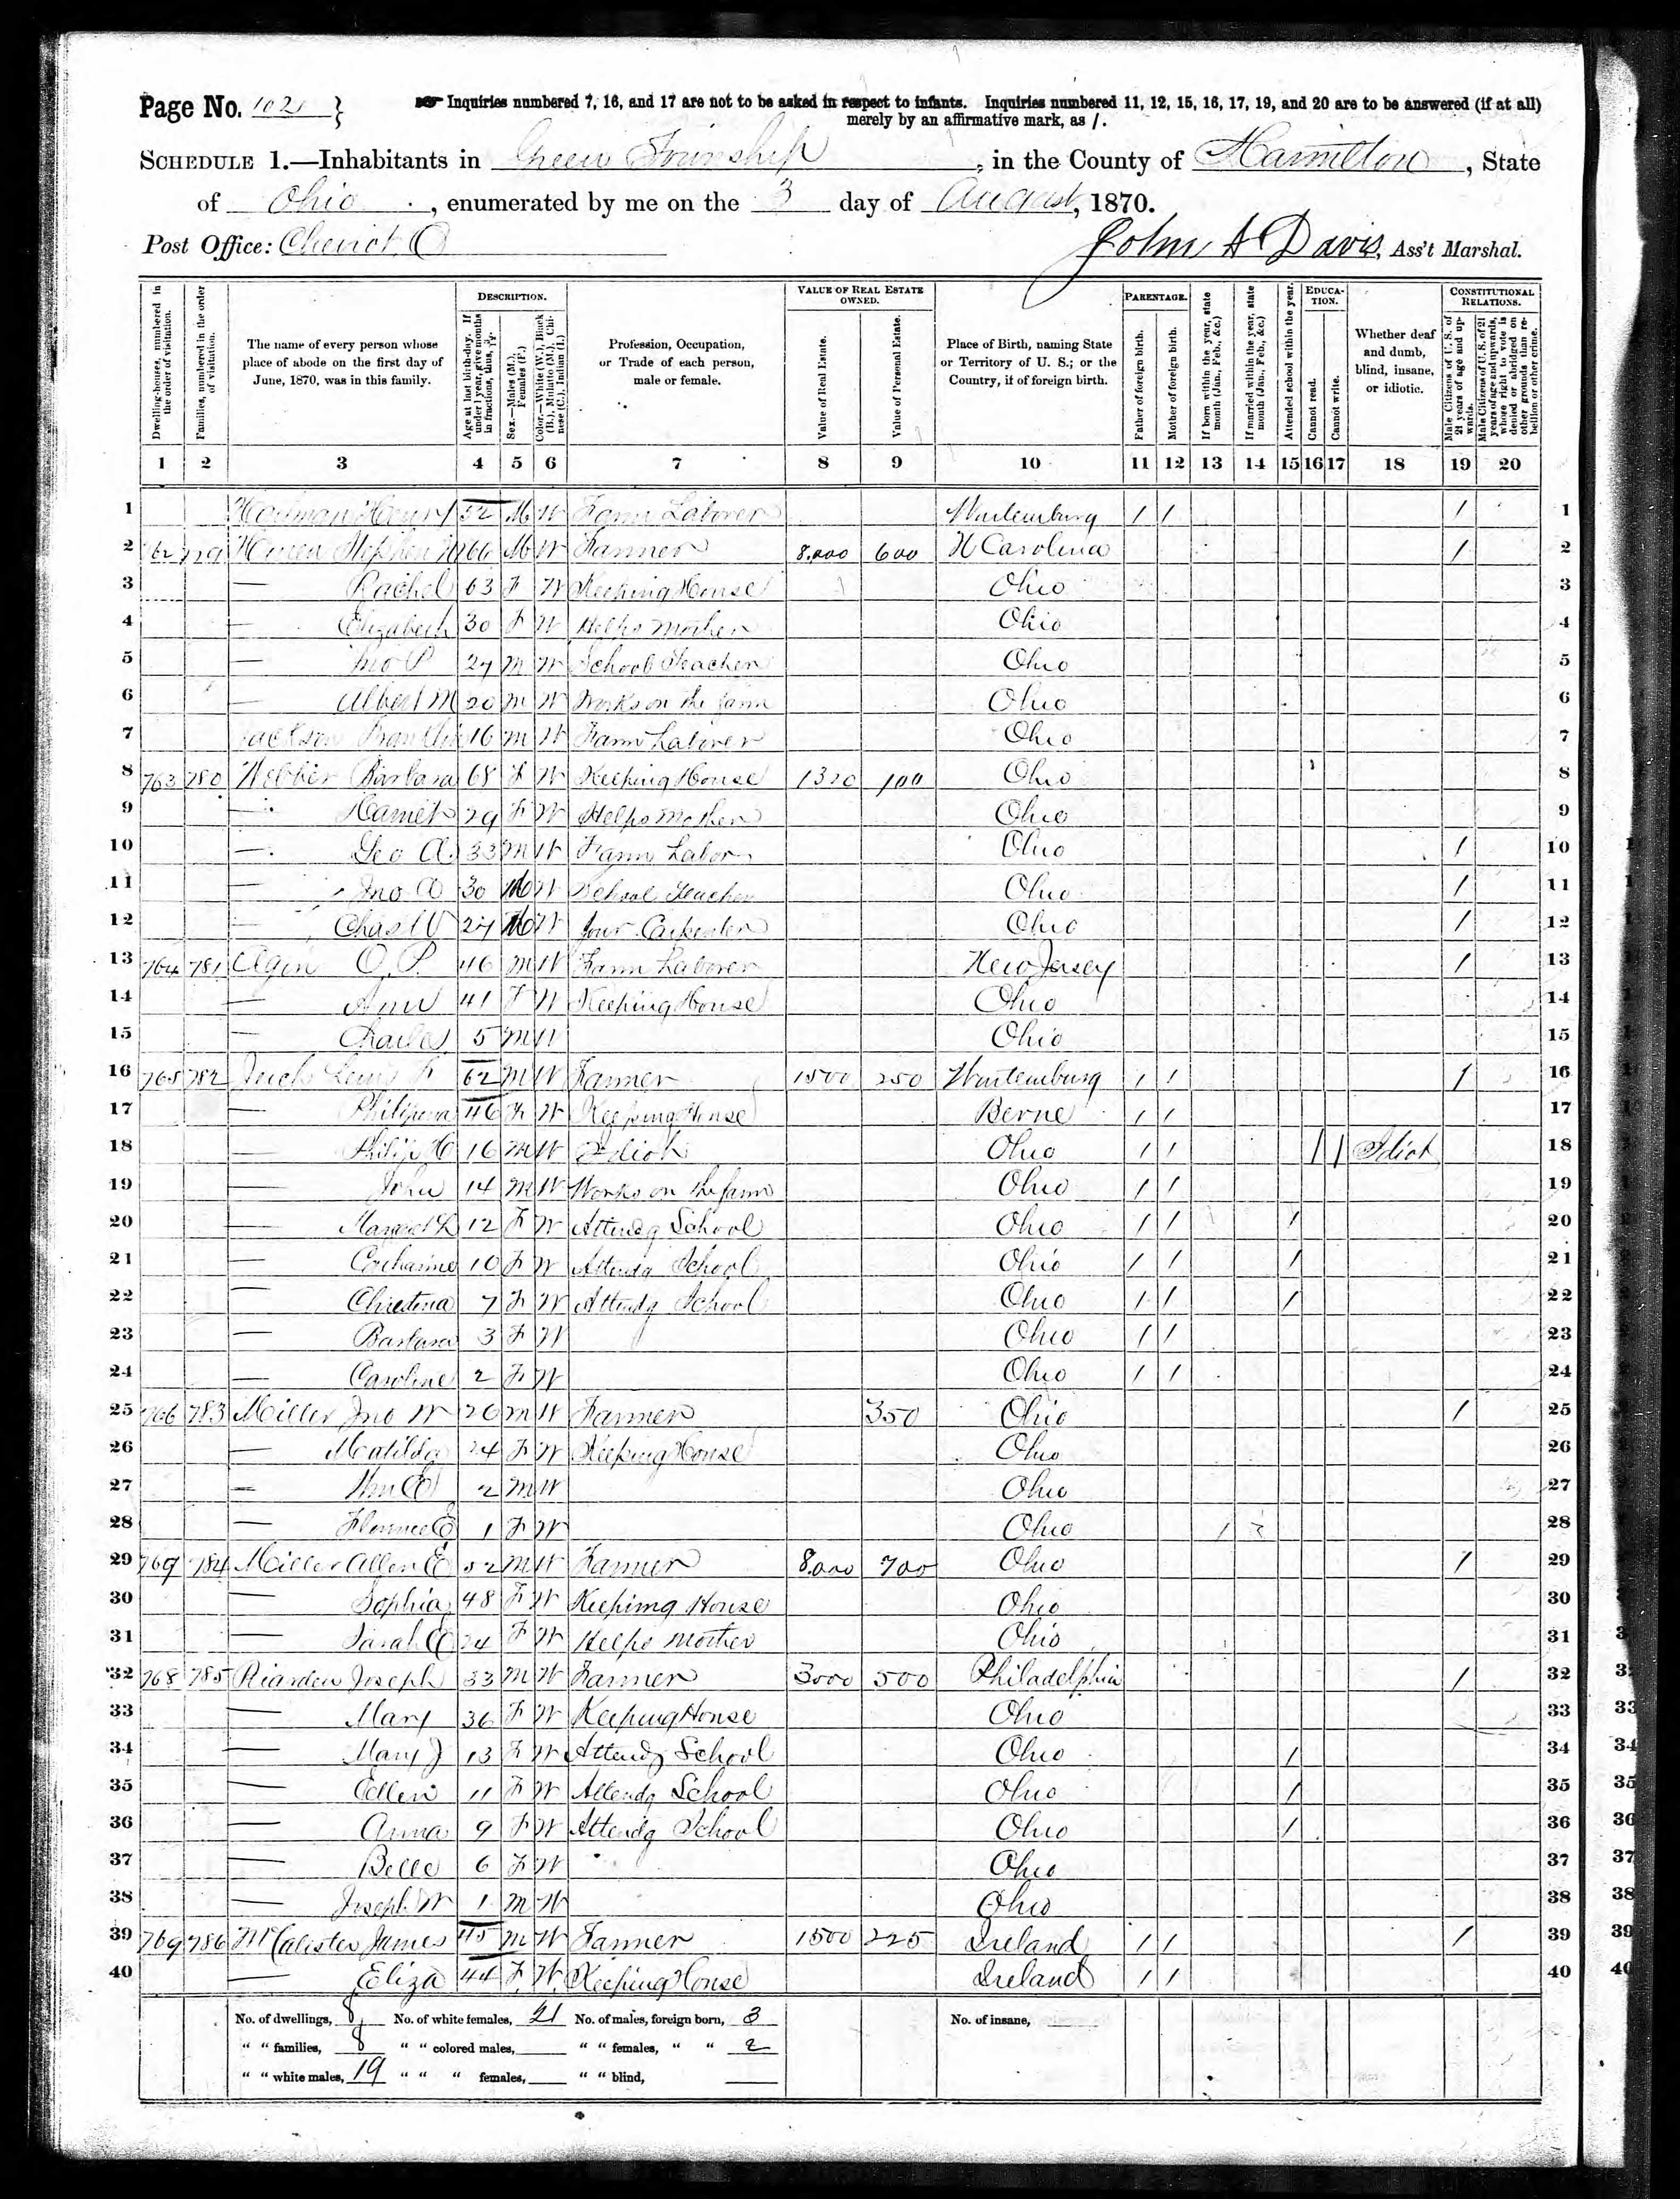 Page No. 102
☞ Inquiries numbered 7, 16, and 17 are not to be asked in respect to infants. Inquiries numbered 11, 12, 15, 16, 17, 19, and 20 are to be answered (if at all)
merely by an affirmative mark, as /.
SCHEDULE 1.—Inhabitants in Green Township, in the County of Hamilton, State
of Ohio, enumerated by me on the 3 day of August, 1870.
Post Office: Cheviot O
John A Davis, Ass't Marshal.
Dwelling-houses, numbered in the order of visitation.
Families, numbered in the order of visitation.
The name of every person whose place of abode on the first day of June, 1870, was in this family.
DESCRIPTION.
Age at last birth-day. If under 1 year, give months in fractions, thus, 3/12.
Sex.—Males (M.), Females (F.)
Color.—White (W.), Black (B.), Mulatto (M.), Chinese (C.), Indian (I.)
Profession, Occupation, or Trade of each person, male or female.
VALUE OF REAL ESTATE OWNED.
Value of Real Estate.
Value of Personal Estate.
Place of Birth, naming State or Territory of U. S.; or the Country, if of foreign birth.
PARENTAGE.
Father of foreign birth.
Mother of foreign birth.
If born within the year, state month (Jan., Feb., &c.)
If married within the year, state month (Jan., Feb., &c.)
Attended school within the year.
EDUCATION.
Cannot read.
Cannot write.
Whether deaf and dumb, blind, insane, or idiotic.
CONSTITUTIONAL RELATIONS.
Male Citizens of U. S. of 21 years of age and upwards.
Male Citizens of U. S. of 21 years of age and upwards, whose right to vote is denied or abridged on other grounds than rebellion or other crime.
1 2 3 4 5 6 7 8 9 10 11 12 13 14 15 16 17 18 19 20
1 Henry 52 M W Farm Laborer Wurtemburg / / / 1
2 Stephen 66 M W Farmer 8.000 600 N Carolina / 2
3 — Rachel 63 F W Keeping House Ohio 3
4 — Elizabeth 30 F W Helps Mother Ohio 4
5 — Jno P 27 M W School Teacher Ohio 5
6 — Albert M 20 M W Works on the farm Ohio 6
7 Jackson Franklin 16 M W Farm Laborer Ohio 7
8 763 780 Webber Barbara 68 F W Keeping House 1320 100 Ohio 8
9 — Harriet 29 F W Helps Mother Ohio 9
10 — Geo A. 33 M W Farm Labor Ohio / 10
11 — Jno A 30 M W School Teacher Ohio / 11
12 — Chas W 27 M W Jour. Carpenter Ohio / 12
13 764 781 Agin O. P. 46 M W Farm Laborer New Jersey / 13
14 — Ann 41 F W Keeping House Ohio 14
15 — Charles 5 M W Ohio 15
16 765 782 Lewis F 62 M W Farmer 1500 250 Wurtemburg / / / 16
17 — Philipena 46 F W Keeping House Berne / / 17
18 — Philip H 16 M W Idiot Ohio / / / / Idiot 18
19 — John 14 M W Works on the farm Ohio / / 19
20 — Margret L 12 F W Attendg School Ohio / / / 20
21 — Catharine 10 F W Attendg School Ohio / / / 21
22 — Christena 7 F W Attendg School Ohio / / / 22
23 — Barbara 3 F W Ohio / / 23
24 — Caroline 2 F W Ohio / / 24
25 766 783 Miller Jno W 26 M W Farmer 350 Ohio / 25
26 — Matilda 24 F W Keeping House Ohio 26
27 — Wm E 2 M W Ohio 27
28 — Florence E 1 F W Ohio 28
29 769 784 Miller Allen E 52 M W Farmer 8.000 700 Ohio / 29
30 — Sophia 48 F W Keeping House Ohio 30
31 — Sarah E 24 F W Helps Mother Ohio 31
32 768 785 Riarden Joseph 33 M W Farmer 3000 500 Philadelphia / 32
33 — Mary 36 F W Keeping House Ohio 33
34 — Mary J 13 F W Attendg School Ohio / 34
35 — Ellen 11 F W Attendg School Ohio / 35
36 — Anna 9 F W Attendg School Ohio / 36
37 — Belle 6 F W Ohio 37
38 — Joseph W 1 M W Ohio 38
39 769 786 McCalister James 45 M W Farmer 1500 225 Ireland / / / 39
40 — Eliza 44 F W Keeping House Ireland / / 40
No. of dwellings, 8 No. of white females, 21 No. of males, foreign born, 3 No. of insane,
" " families, 8 " " colored males, " " females, " " 2
" " white males, 19 " " " females, " " blind,